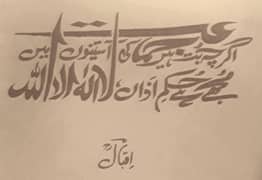 اگرچہ بت ہیں جماعت کی آستینوں میں
مجھے ہے حکمِ اذاں لا الہ الا اللہ
اقبال